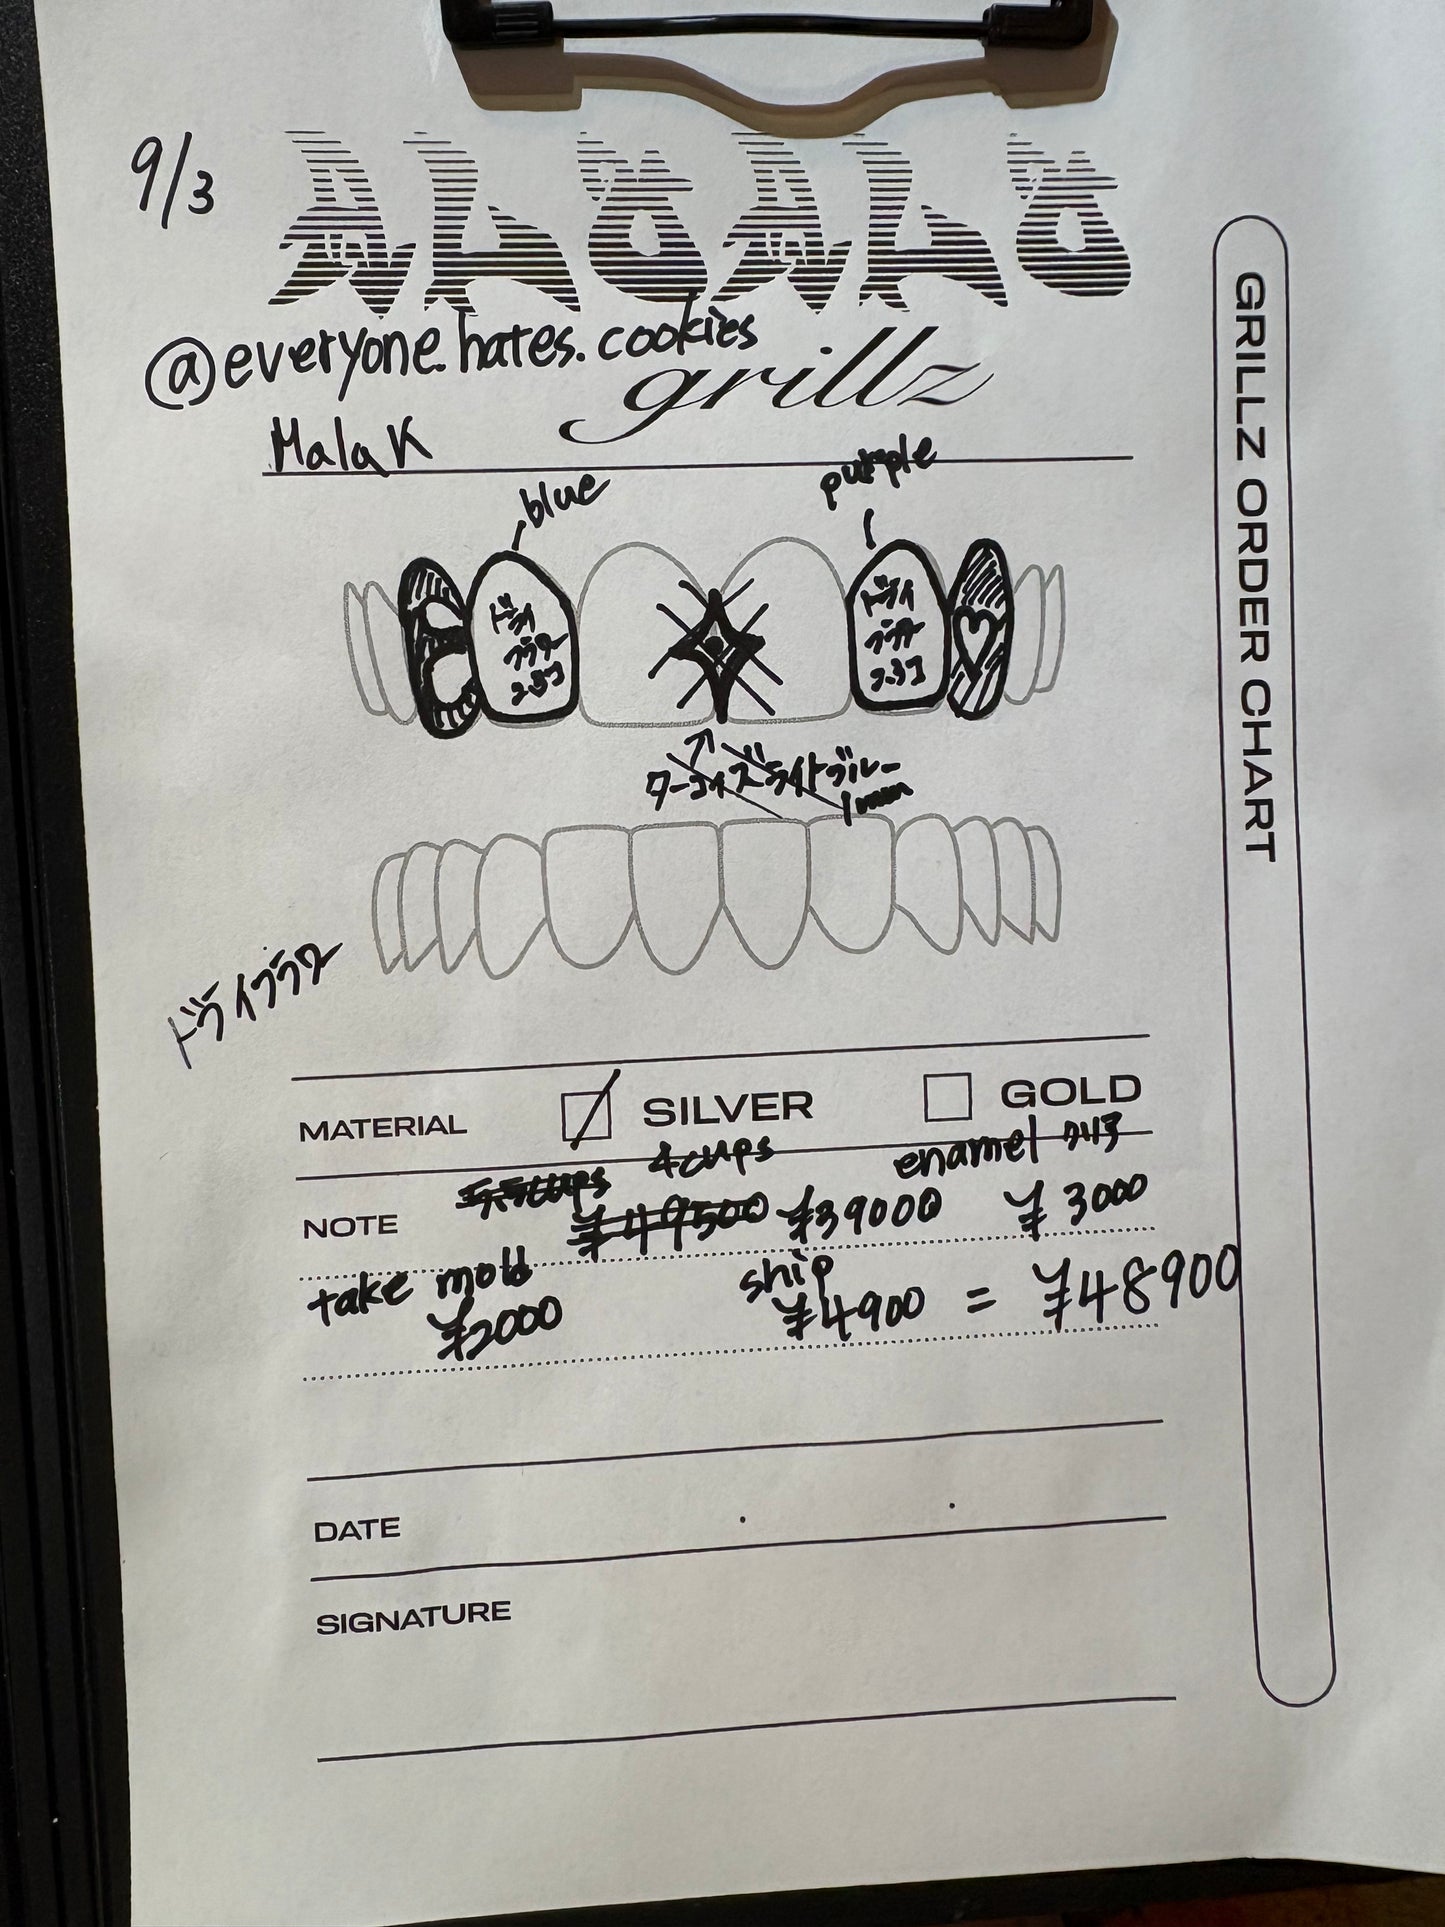 9/3
@everyone.hates.cookies
grillz
Malak
blue
purple
ドライ
フラワー
ドライ
フラワー
ターコイズライトブルー
1mm
ドライフラワー
MATERIAL SILVER GOLD
4cups enamel
NOTE ¥49500 ¥39000 ¥3000
take mold ship
¥2000 ¥4900 = ¥48900
DATE
SIGNATURE
GRILLZ ORDER CHART